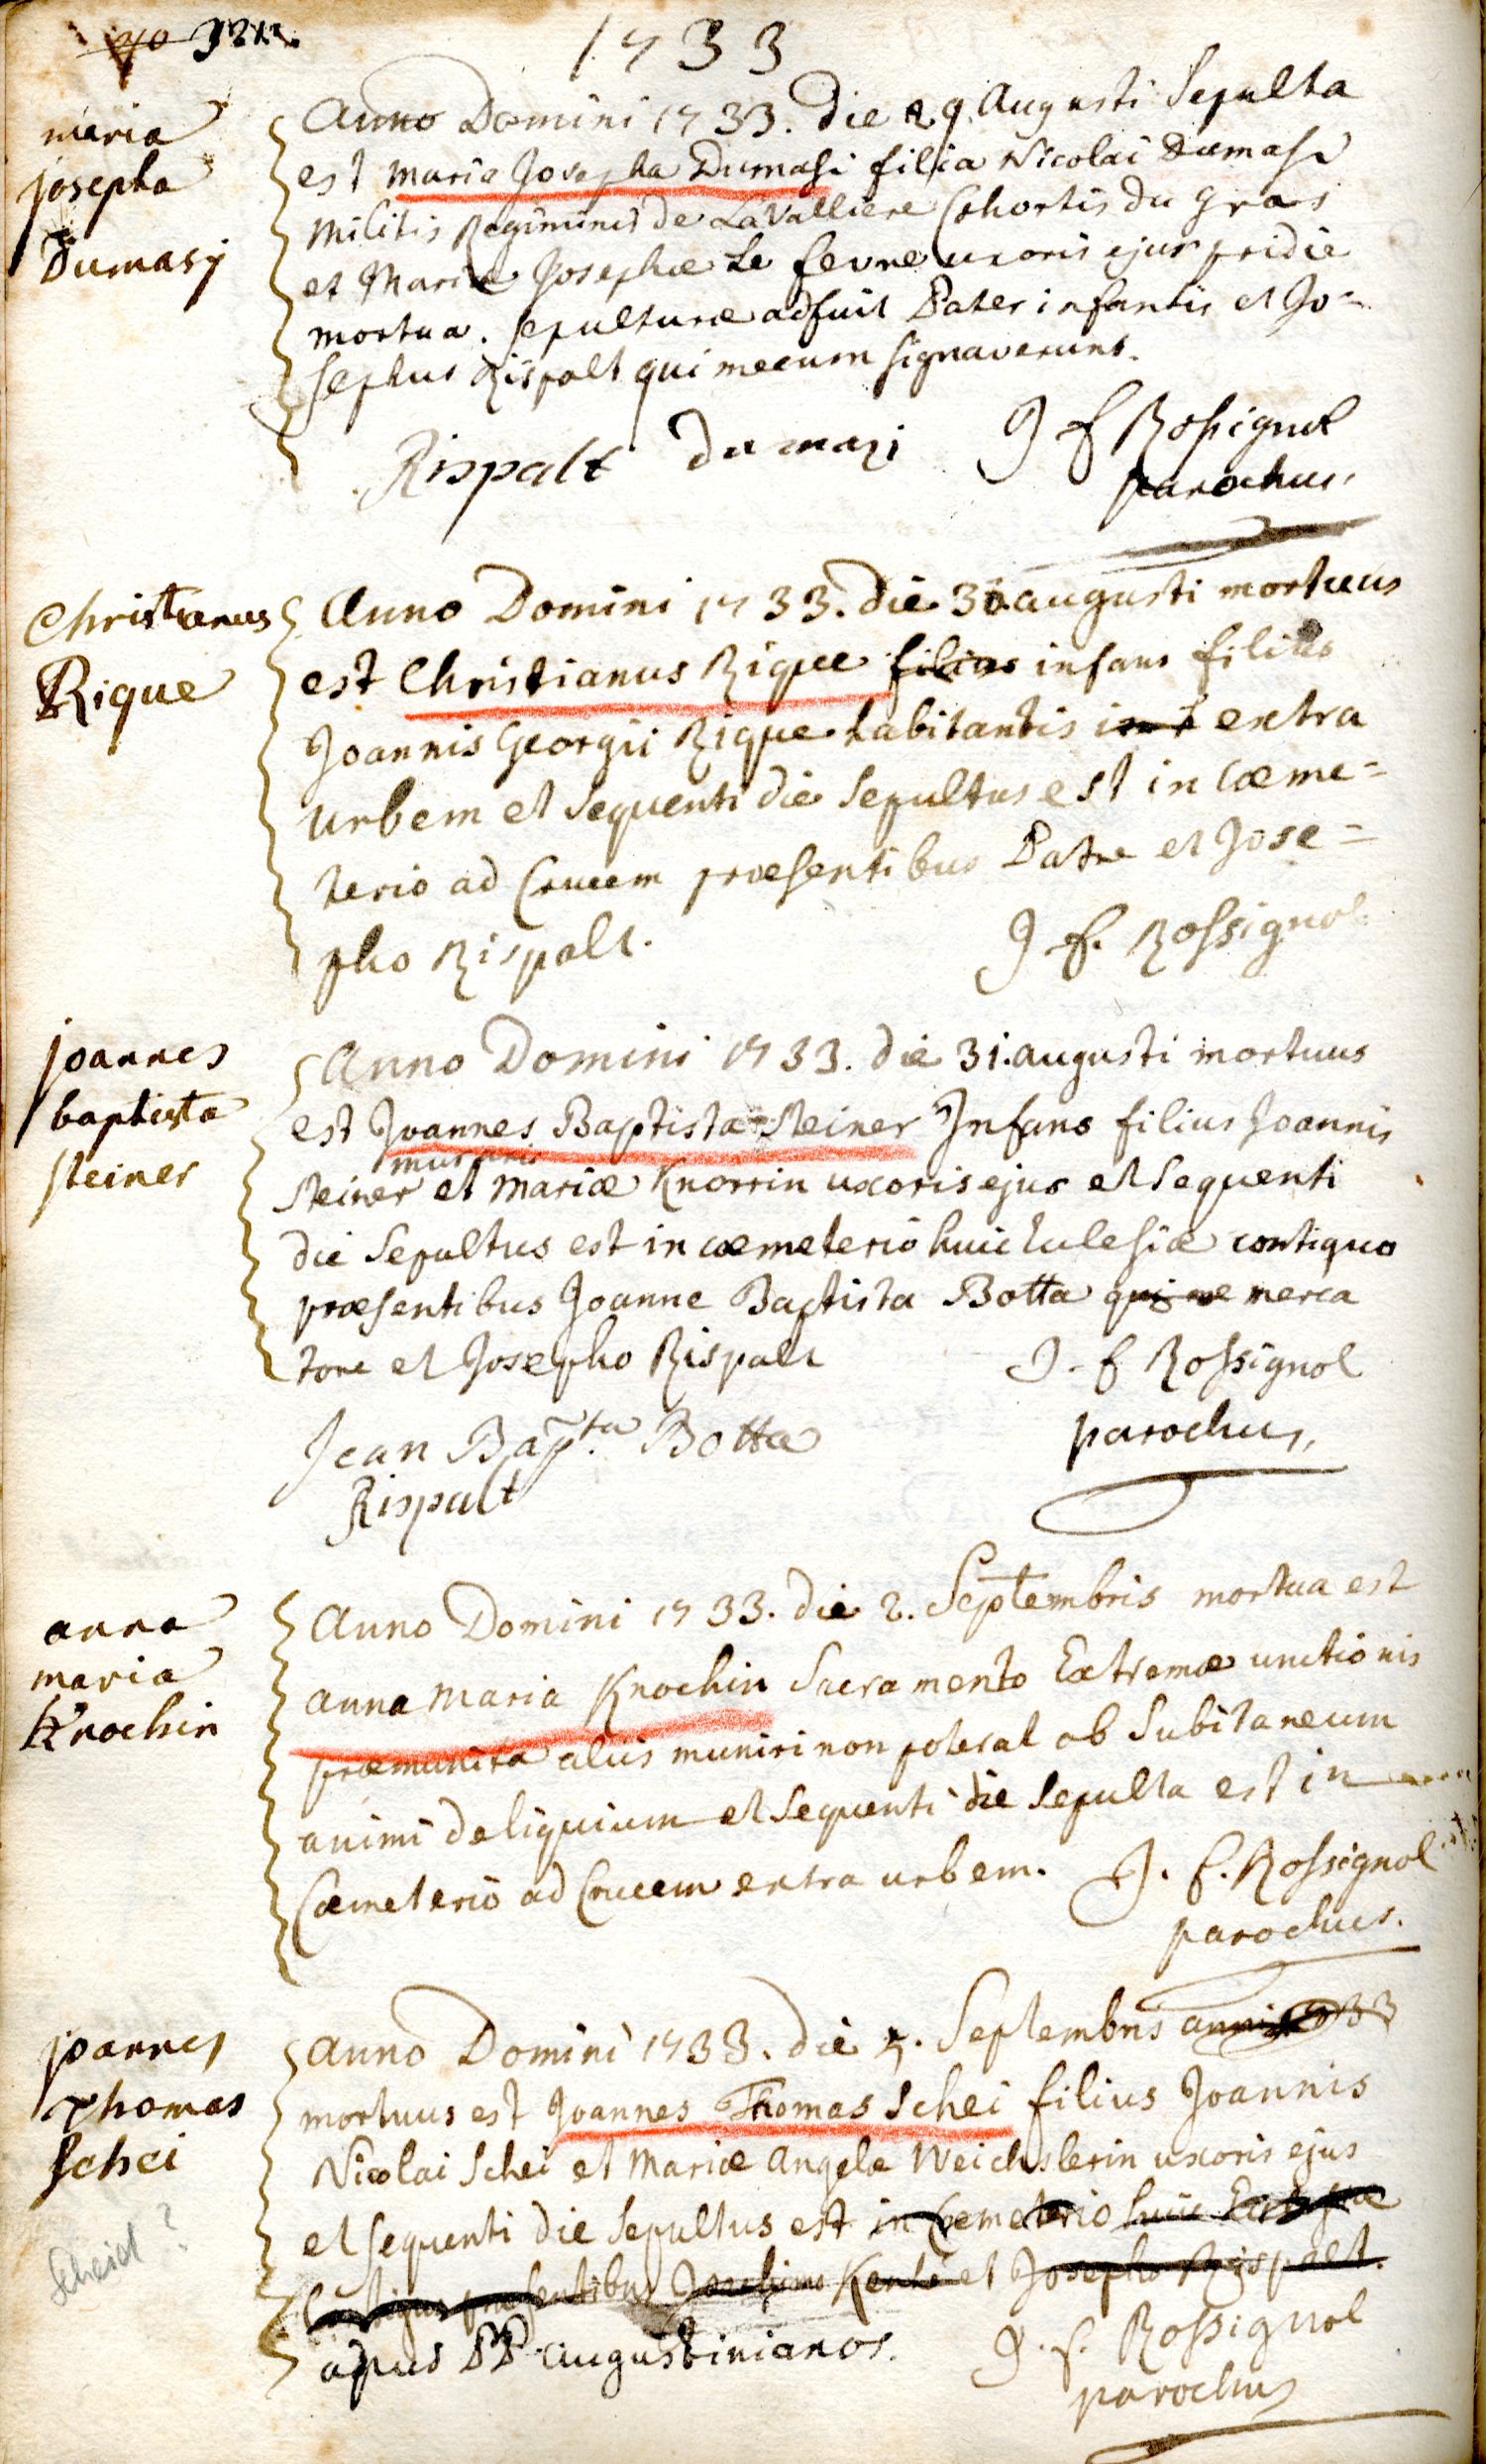 1733
maria
josepha
Dumasy
Anno Domini 1733. die 29. Augusti Sepulta
est Maria Josepha Dumasi filia Nicolai Dumasi
Militis Regiminis de LaValliere Cohortis du Gras
et Mariæ Josephæ Le fevre uxoris ejus pridie
mortua. Sepulturæ adfuit Pater infantis et Jo=
sephus Rispalt qui mecum signaverunt.
Rispalt Dumazi J f Rossignol
parochus.
Christianus
Rique
Anno Domini 1733. die 30. augusti mortuus
est Christianus Rique filius infans filius
Joannis Georgii Rique habitantis extra
urbem et sequenti die Sepultus est in Cœme=
terio ad Crucem præsentibus Patre et Jose=
pho Rispalt. J f. Rossignol
joannes
baptista
steiner
Anno Domini 1733. die 31. augusti mortuus
est Joannes Baptista Steiner Infans filius Joannis
murarii
Steiner et Mariæ Knorrin uxoris ejus et Sequenti
die Sepultus est in cœmeterio huic Ecclesiæ contiguo
præsentibus Joanne Baptista Botta qui me merca
tore et Josepho Rispalt J. f Rossignol
Jean Bapta. Botta parochus.
Rispalt
anna
maria
Knochin
Anno Domini 1733. die 2. Septembris mortua est
Anna Maria Knochin Sacramento Extremæ unctionis
præmunita aliis muniri non poterat ob Subitaneum
animi deliquium et Sequenti die Sepulta est in
Cœmeterio ad Crucem extra urbem. J. f. Rossignol
parochus.
joannes
thomas
schei
Scheid?
Anno Domini 1733. die 5. Septembris anni 1733
mortuus est Joannes Thomas Schei filius Joannis
Nicolai Schei et Mariæ Angelæ Weichslerin uxoris ejus
et sequenti die Sepultus est in Cœmeterio huic Ecclesiæ
Contiguo præsentibus et Josepho Rispalt.
apud PP. Augustinianos. J. f. Rossignol
parochus